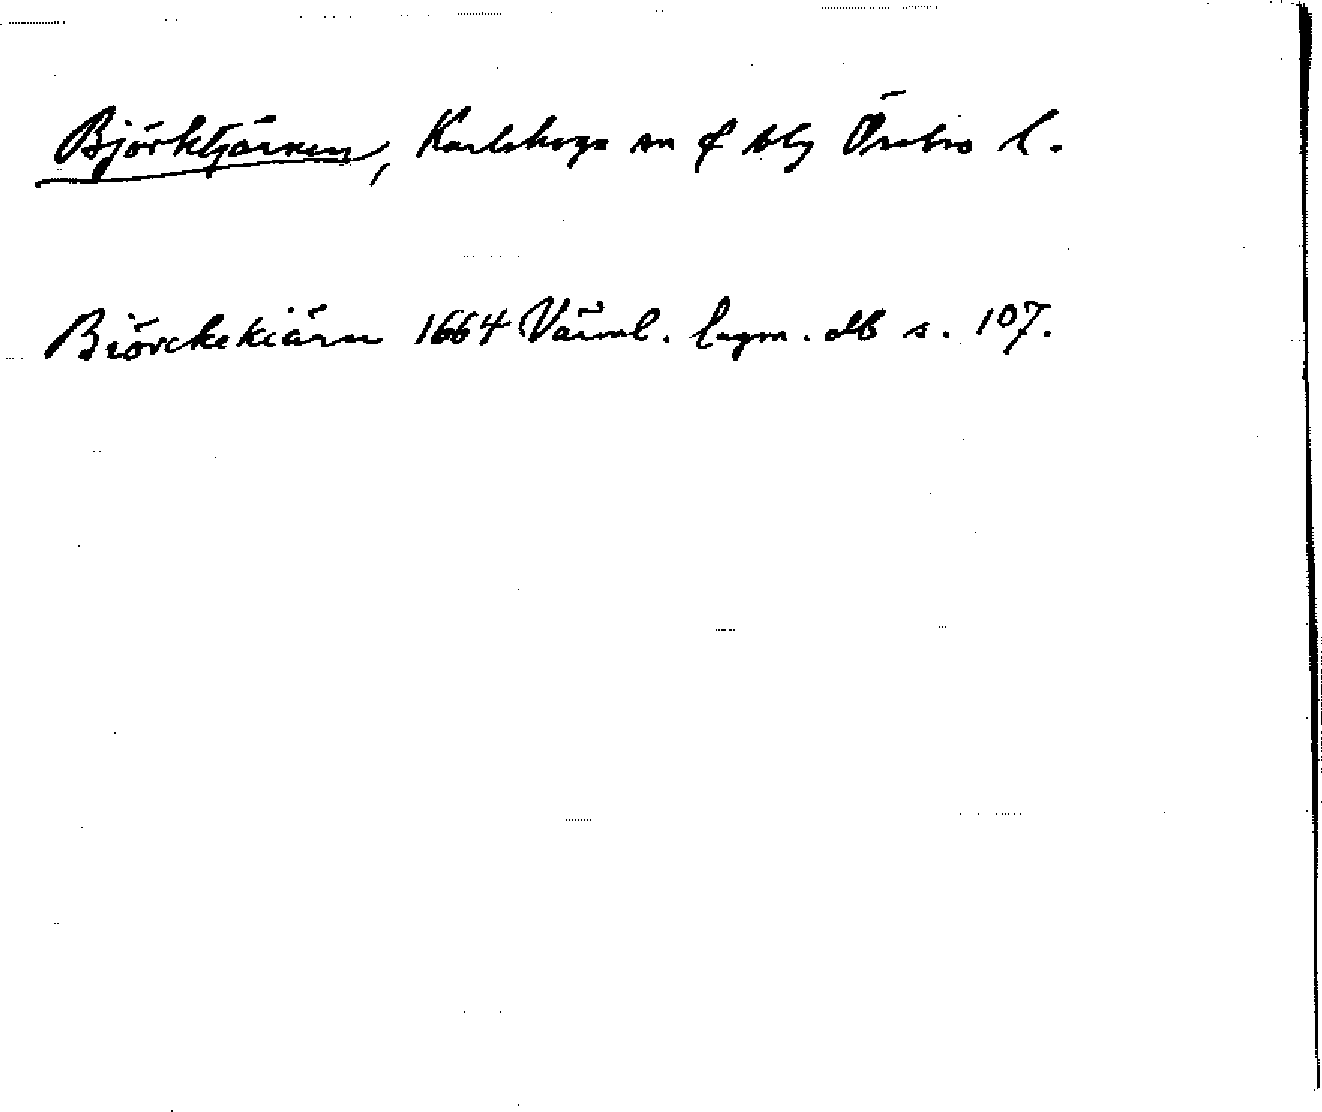 Björktjärnen, Karlskoga sn o blg Örebro l.
Biörckekiärn 1664 Värml. lagm. db s. 107.